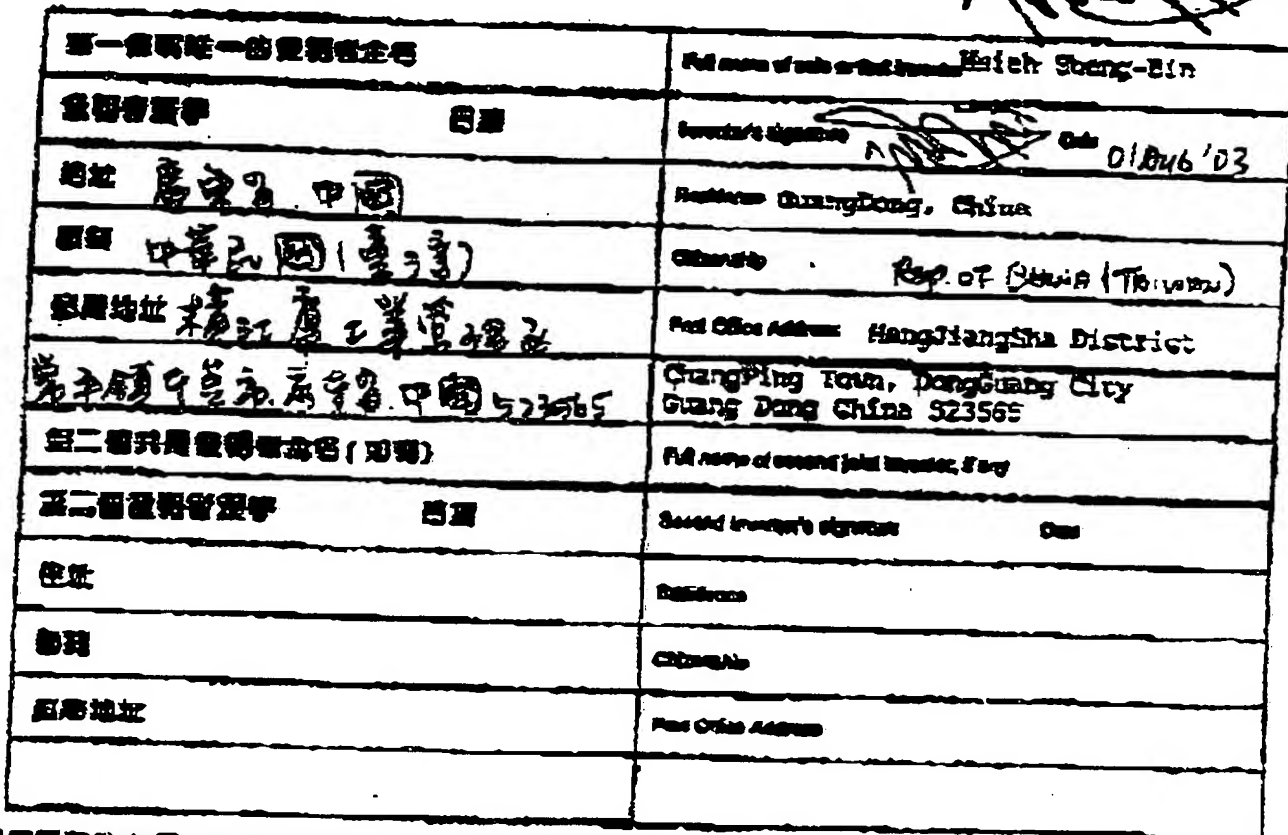 第一個或唯一的發明者全名
Full name of sole or first inventor Hsieh Sheng-Bin
發明者簽字 日期
Inventor's signature Date 01 AUG '03
地址 廣東省 中國
Residence GuangDong, China
國籍 中華民國(臺灣)
Citizenship Rep. of China (Taiwan)
郵局地址
Post Office Address HangJiangSha District
中國 523565
ChangPing Town, DongGuang City
Guang Dong China 523565
第二個共同發明者全名(如有)
Full name of second joint inventor, if any
第二個發明者簽字 日期
Second inventor's signature Date
住址
Residence
國籍
Citizenship
郵局地址
Post Office Address